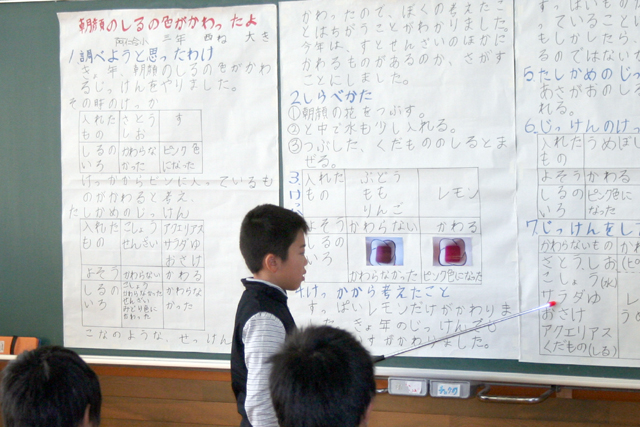 朝顔のしるの色がかわったよ
三年
大き
1調べようと思ったわけ
きょ年、朝顔のしるの色がかわ
るじっけんをやりました。
その時のけっか
入れたもの
さとう
しお
す
しるのいろ
かわらなかった
ピンク色になった
けっかからビンに入っているも
のがかわると考え、
たしかめのじっけん
入れたもの
こしょう
せんざい
アクエリアス
サラダゆ
おさけ
よそう
かわらない
かわる
しるのいろ
こしょう
かわらなかった
せんざい
みどり色にかわった
かわらなかった
こなのような、せっけん
かわったので、ぼくの考えたこ
とはちがうことがわかりました。
今年は、すとせんざいのほかに
かわるものがあるのか、さがす
ことにしました。
2しらべかた
①朝顔の花をつぶす。
②と中で水も少し入れる。
③つぶした、くだもののしるとま
ぜる。
3
入れたもの
ぶどう
もも
りんご
レモン
よそう
かわらない
かわる
しるのいろ
かわらなかった
ピンク色になった
4けっかから考えたこと
すっぱいレモンだけがかわりま
した。きょ年のじっけんでも
けがかわりました。
すっぱいもの
ていること
もしかしたら、
るのではないか
5たしかめのじっ
あさがおのしる
れる。
6.じっけんのけっ
入れたもの
うめぼし
よそう
かわる
しるのいろ
ピンク色になった
7.じっけんをし
かわらないもの
かわ
さとう、しお
こしょう(水)
サラダゆ
おさけ
アクエリアス
くだもの(しる)